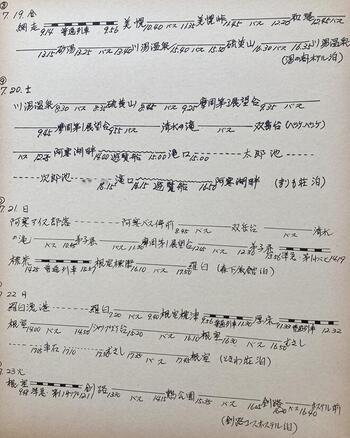 ③
7. 19. 金
網走 9.14 普通列車 9.56 美幌 10.40 バス 11.35 美幌峠 11.45 バス 12.20 和琴 12.45 バス
13.15 砂湯 13.25 バス 13.40 川湯温泉 15.40 バス 15.50 硫黄山 16.30 バス 16.35 川湯温泉
(湯の閣ホテル泊)
④
7. 20. 土
川湯温泉 8.30 バス 8.35 硫黄山 8.45 バス 9.25 摩周第3展望台 9.35 バス
9.45 摩周第1展望台 9.55 バス 清水の滝 バス 双岳台 (ペンケ、パンケ)
バス 12.25 阿寒湖畔 14.00 遊覧船 15.00 滝口 15.00 太郎池
次郎池 滝口 16.15 遊覧船 16.50 阿寒湖畔 (まりも荘泊)
7. 21. 日
阿寒アイヌ部落 阿寒バス停前 8.45 バス 双岳台 バス 清水
の滝 バス 弟子屈 バス 11.20 摩周第1展望台 バス 弟子屈
標茶 14.25 普通列車 根室標津 16.10 バス 17.50 羅臼
7. 22 月
羅臼漁港 羅臼 7.20 バス 根室標津 普通列車 厚床 11.33 普通列車 12.32
根室 14.00 バス 14.50 ノサップ灯台 15.20 バス 16.10 根室 16.30 バス 16.50
車石 17.10 バス 根室 (ときわ荘泊)
7. 23 火
根室 釧路 バス 鶴公園 15.35 バス 釧路 バス 16.40
(釧路ユースホステル泊)